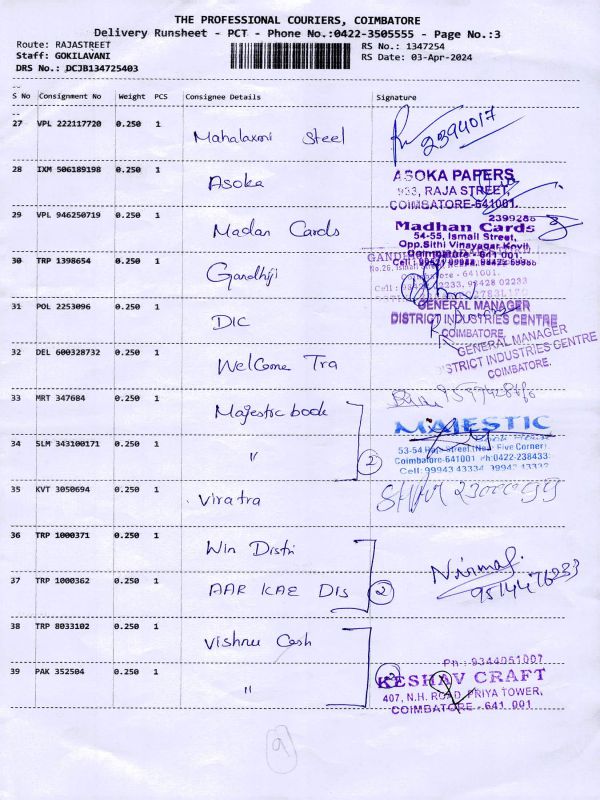 THE PROFESSIONAL COURIERS, COIMBATORE
Delivery Runsheet - PCT - Phone No.:0422-3505555 - Page No.:3
Route: RAJASTREET
RS No.: 1347254
Staff: GOKILAVANI
RS Date: 03-Apr-2024
DRS No.: DCJB134725403
S No Consignment No Weight PCS Consignee Details Signature
27 VPL 222117720 0.250 1 Mahalaxmi Steel 2394017
28 IXM 506189198 0.250 1 Asoka
ASOKA PAPERS
933, RAJA STREET,
COIMBATORE-641001.
29 VPL 946250719 0.250 1 Madan Cards
2399286
Madhan Cards
54-55, Ismail Street,
Opp.Sithi Vinayagar Kovil,
Coimbatore - 641 001.
30 TRP 1398654 0.250 1 Gandhiji
No.26, Ismail
Coimbatore - 641001.
31 POL 2253096 0.250 1 DIC
GENERAL MANAGER
DISTRICT INDUSTRIES CENTRE
COIMBATORE.
32 DEL 600328732 0.250 1 Welcome Tra
GENERAL MANAGER
DISTRICT INDUSTRIES CENTRE
COIMBATORE.
33 MRT 347684 0.250 1 Majestic book
MAJESTIC
34 SLM 343100171 0.250 1 "
2
53-54, Raja Street (Near Five Corner)
Coimbatore-641001 Ph:0422-238433
Cell: 99943 43334, 99942 43332
35 KVT 3050694 0.250 1 Viratra
36 TRP 1000371 0.250 1 Win Distri
Nirmal.
37 TRP 1000362 0.250 1 AAR KAE DIS 2
38 TRP 8033102 0.250 1 Vishnu Cash
Ph : 9344051007
39 PAK 352504 0.250 1 "
KESHAV CRAFT
407, N.H. ROAD, PRIYA TOWER,
COIMBATORE - 641 001
9